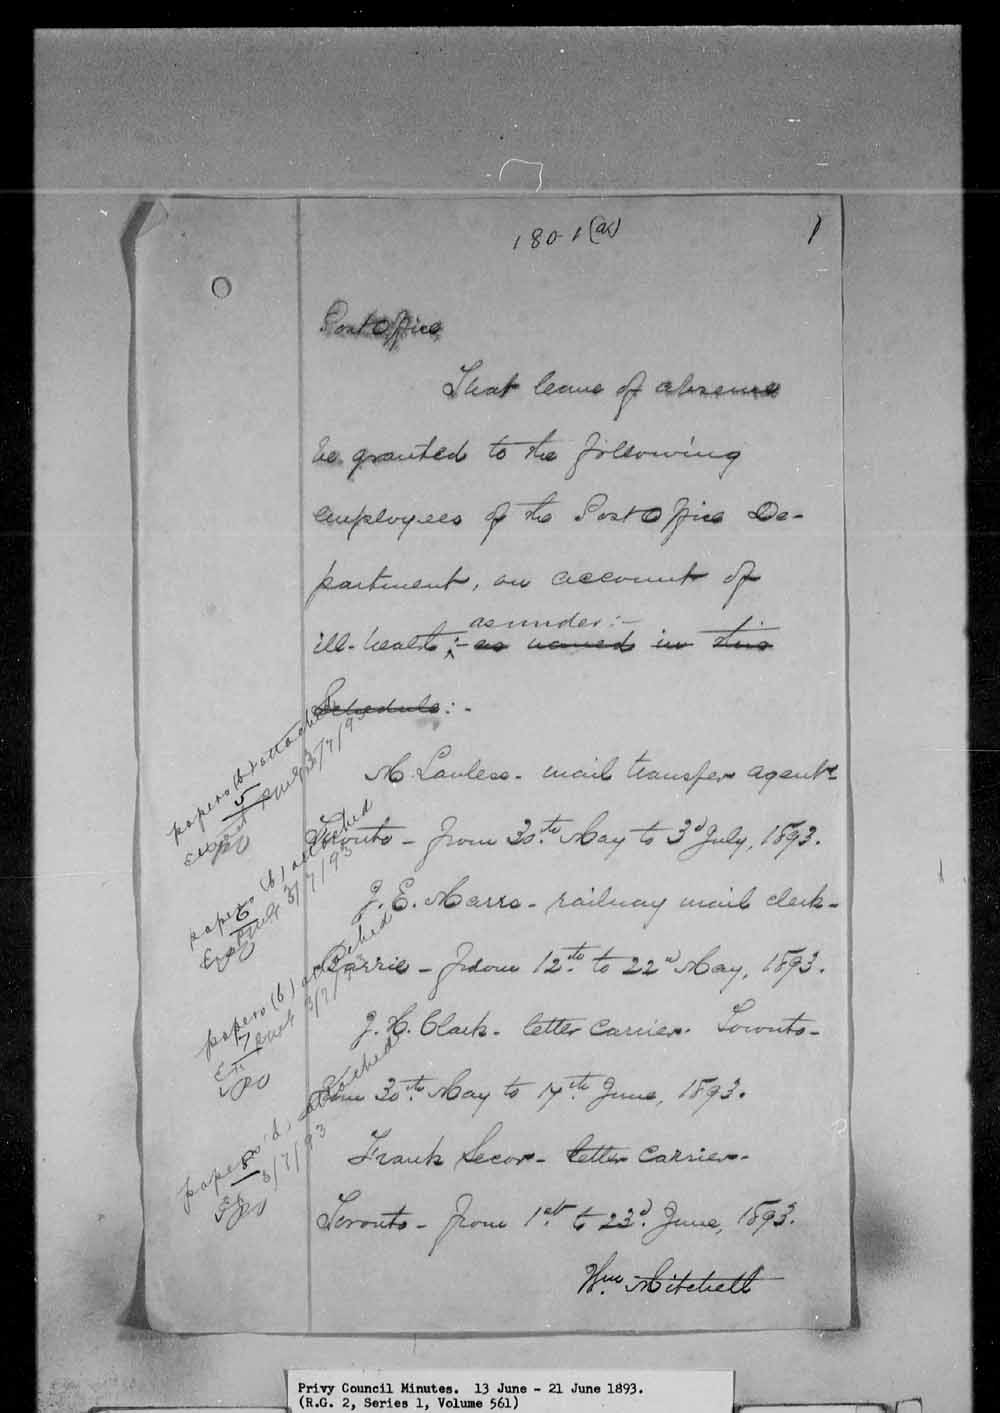 1801 (ac) 1
Post Office
That leave of absence
be granted to the following
employees of the Post Office De-
partment, on account of
as under :-
ill-health, :- as named in this
Schedule : -
M. Lawless - mail transfer agent -
Toronto - from 30th. May to 3d July, 1893.
J. E. Marrs - railway mail clerk -
Barrie - from 12th. to 22d May, 1893.
J. H. Clark - letter carrier - Toronto -
from 30th. May to 17th June, 1893.
Frank Secor - letter carrier -
Toronto - from 1st. to 23d. June, 1893.
Wm. Mitchell
papers (b) attached
5
3/7/93
papers (b) attached
6
3/7/93
papers (b) attached
7
3/7/
papers attached
8
3/7/93
Privy Council Minutes. 13 June - 21 June 1893.
(R.G. 2, Series 1, Volume 561)